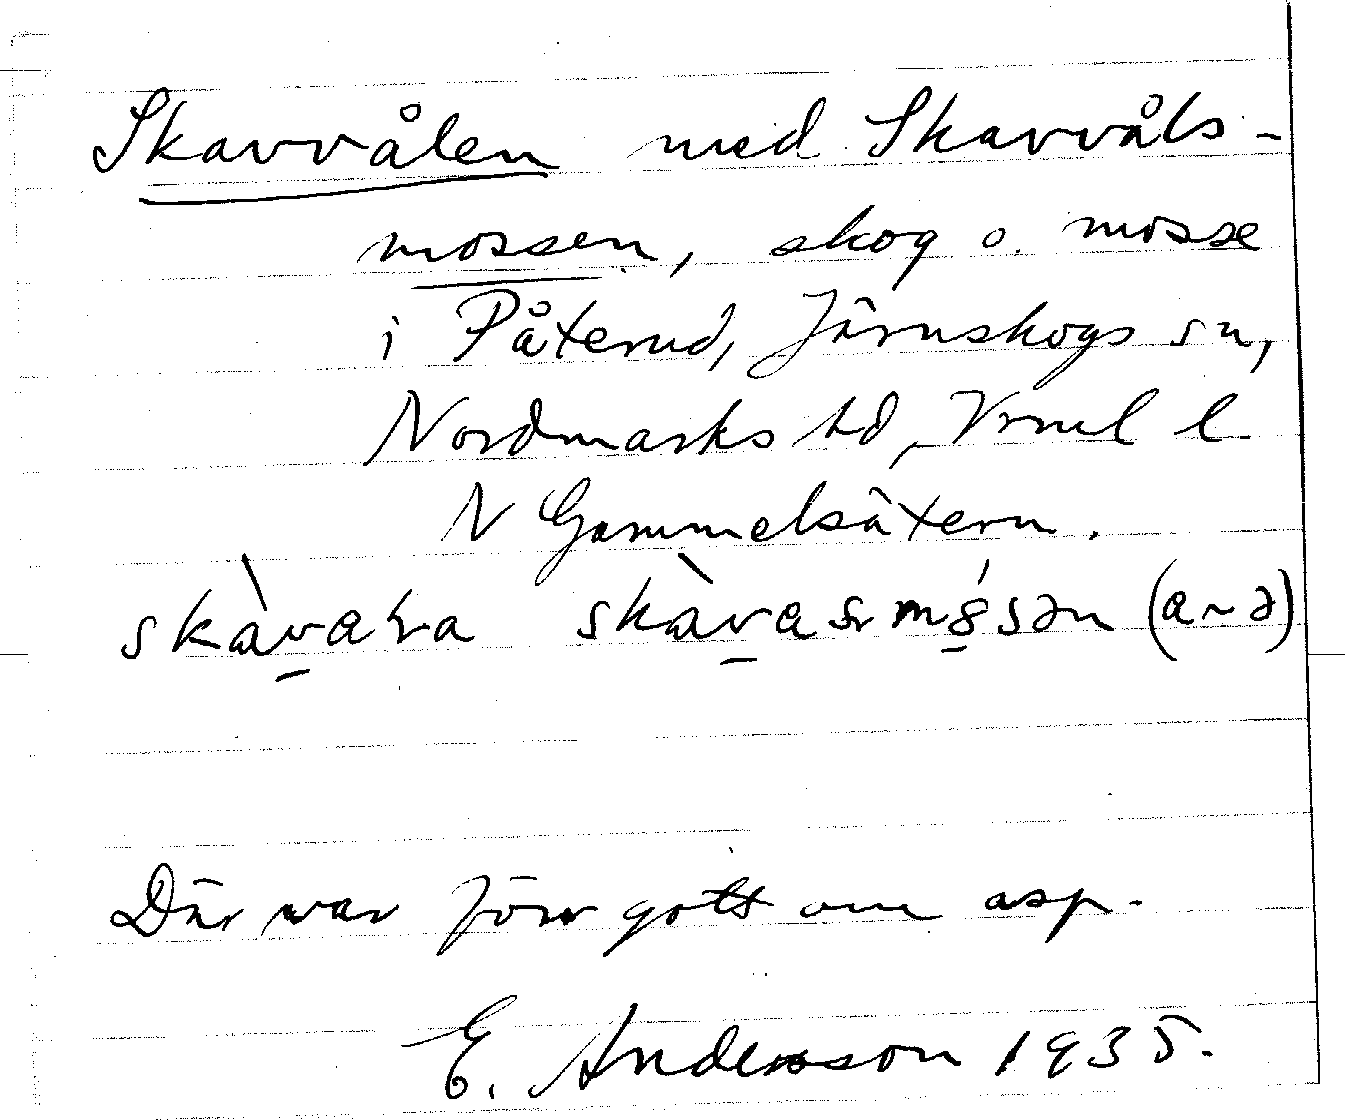 Skavvålen med Skavvåls-
mossen, skog o. mosse
i Påterud, Järnskogs sn,
Nordmarks hd, Vrml l.
N Gammelsätern.
(a~ə)
Där var förr gott om asp.
E. Andersson 1935.